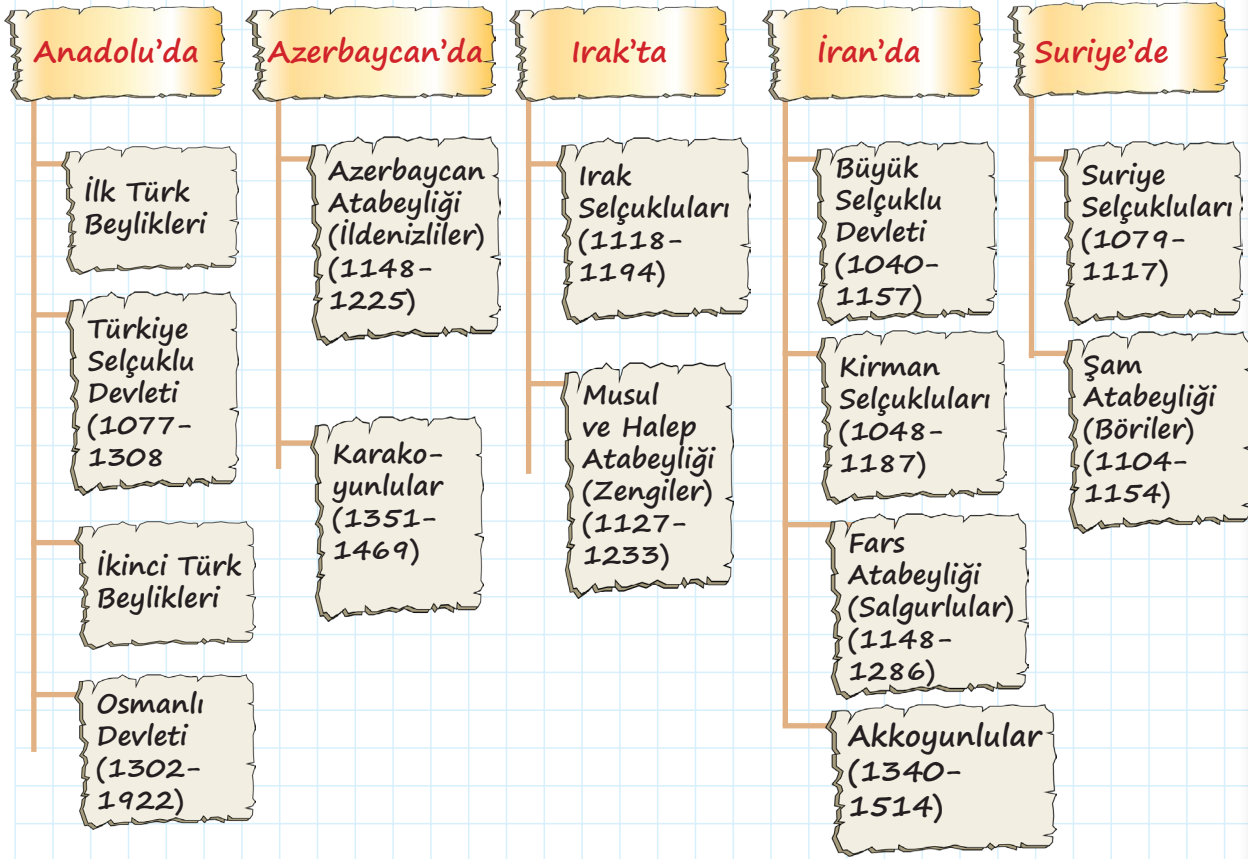 Anadolu'da
İlk Türk
Beylikleri
Türkiye
Selçuklu
Devleti
(1077-
1308
İkinci Türk
Beylikleri
Osmanlı
Devleti
(1302-
1922)
Azerbaycan'da
Azerbaycan
Atabeyliği
(İldenizliler)
(1148-
1225)
Karako-
yunlular
(1351-
1469)
Irak'ta
Irak
Selçukluları
(1118-
1194)
Musul
ve Halep
Atabeyliği
(Zengiler)
(1127-
1233)
İran'da
Büyük
Selçuklu
Devleti
(1040-
1157)
Kirman
Selçukluları
(1048-
1187)
Fars
Atabeyliği
(Salgurlular)
(1148-
1286)
Akkoyunlular
(1340-
1514)
Suriye'de
Suriye
Selçukluları
(1079-
1117)
Şam
Atabeyliği
(Böriler)
(1104-
1154)